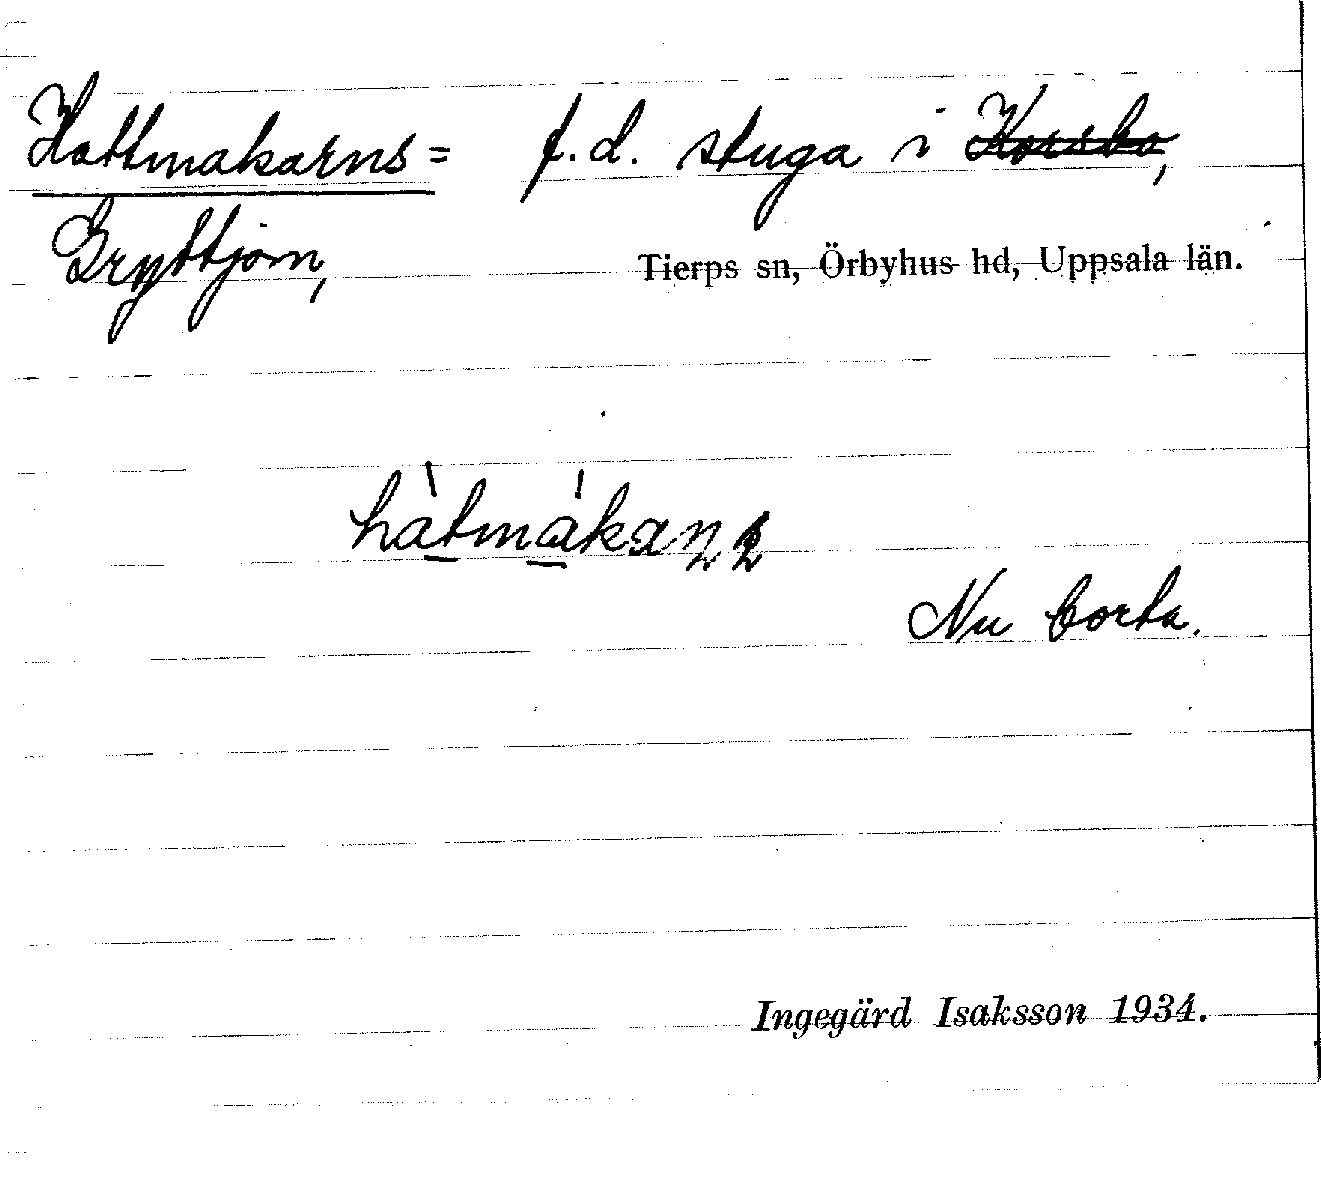 Hattmakarns = f.d. stuga i Korsbo,
Gryttjom, Tierps sn, Örbyhus hd, Uppsala län.
hàtmàkan
Nu borta.
Ingegärd Isaksson 1934.